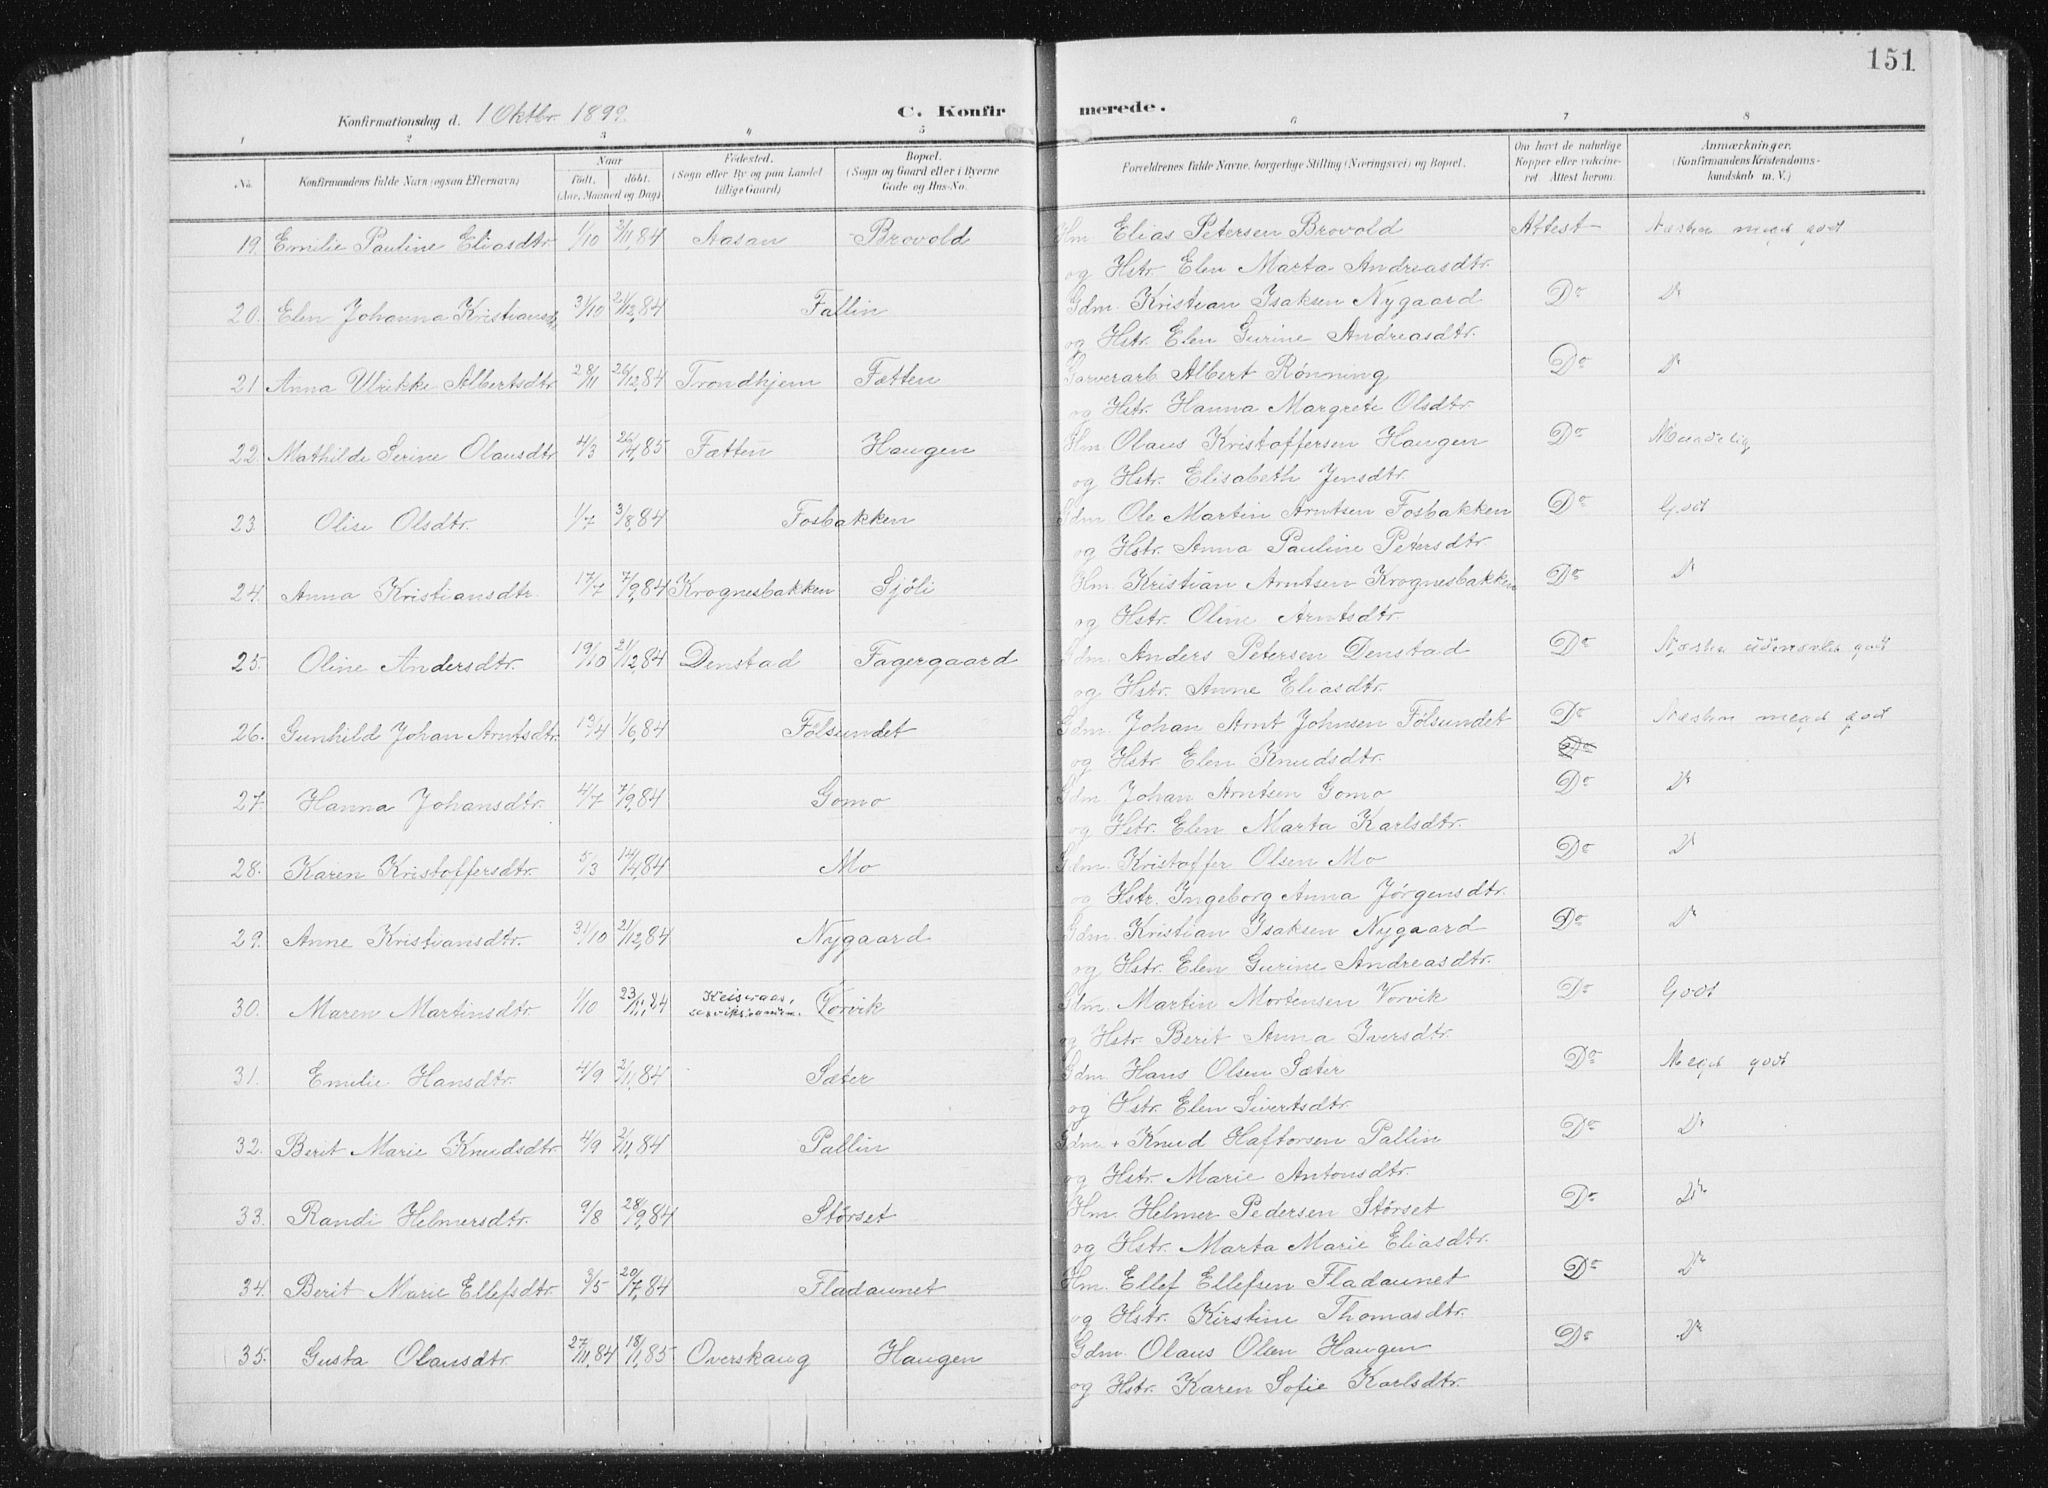 151
Konfirmationsdag d. 1 Oktbr. 1899. C. Konfirmerede.
1 2 3 4 5 6 7 8
No. Konfirmandens fulde Navn (ogsaa Efternavn) Naar födt. döbt. (Aar, Maaned og Dag) Födested. (Sogn eller By og paa Landet tillige Gaard) Bopæl. (Sogn og Gaard eller i Byerne Gade og Hus-No. Forældrenes fulde Navne, borgerlige Stilling (Næringsvei) og Bopæl. Om havt de naturlige Kopper eller vaccineret. Attest herom. Anmærkninger. (Konfirmandens Kristendomskundskab m. V.)
19. Emilie Pauline Eliasdtr. 1/10 2/11,84 Aasan Brovold Hm. Elias Petersen Brovold Attest Næsten meget godt
og Hstr. Elen Marta Andreasdtr.
20. Elen Johanna Kristiansdtr. 31/10 21/12,84 Fallin Gdm. Kristian Isaksen Nygaard Do Do
og Hstr. Elen Gurine Andreasdtr.
21. Anna Ulrikke Albertsdtr. 28/11 26/12,84 Trondhjem Fætten Garverarb. Albert Rönning Do Do
og Hstr. Hanna Margrete Olsdtr.
22. Mathilde Serine Olausdtr. 4/3 26/4,85 Fætten Haugen Hm. Olaus Kristoffersen Haugen Do Maadelig
og Hstr. Elisabeth Jensdtr.
23. Olise Olsdtr. 1/7 3/8,84 Fosbakken Gdm. Ole Martin Arntsen Fosbakken Do Godt
og Hstr. Anna Pauline Petersdtr.
24. Anna Kristiansdtr. 17/7 7/9,84 Krognesbakken Sjöli Hm. Kristian Arntsen Krognesbakken Do Do
og Hstr. Oline Arntsdtr.
25. Oline Andersdtr. 19/10 21/12,84 Denstad Fagergaard Gdm. Anders Petersen Denstad Do Næsten udmerket godt
og Hstr. Anne Eliasdtr.
26. Gunhild Johan Arntsdtr. 13/4 1/6,84 Fölsundet Gdm. Johan Arnt Johnsen Fölsundet Do Næsten meget godt
og Hstr. Elen Knudsdtr. Do
27. Hanna Johansdtr. 4/7 7/9,84 Gomo Gdm. Johan Arntsen Gomo Do Do
og Hstr. Elen Marta Karlsdtr.
28. Karen Kristoffersdtr. 5/3 14/4,84 Mo Gdm. Kristoffer Olsen Mo Do Do
og Hstr. Ingeborg Anna Jörgensdtr.
29. Anne Kristiansdtr. 31/10 21/12,84 Nygaard Gdm. Kristian Isaksen Nygaard Do Do
og Hstr. Elen Gurine Andreasdtr.
30. Maren Martinsdtr. 1/10 23/11,84 Vorvik Gdm. Martin Mortensen Vorvik Do Godt
og Hstr. Berit Anna Iversdtr.
31. Emilie Hansdtr. 4/9 2/11,84 Sæter Gdm. Hans Olsen Sæter Do Meget godt
og Hstr. Elen Sivertsdtr.
32. Berit Marie Knudsdtr. 4/9 2/11,84 Pallin Gdm. + Knud Haftorsen Pallin Do Do
og Hstr. Marie Antonsdtr.
33. Randi Helmersdtr. 9/8 28/9,84 Störset Hm. Helmer Pedersen Störset Do Do
og Hstr. Marta Marie Eliasdtr.
34. Berit Marie Ellefsdtr. 3/5 20/7,84 Fladaunet Hm. Ellef Ellefsen Fladaunet Do Do
og Hstr. Kirstine Thomasdtr.
35. Gusta Olausdtr. 27/11,84 18/1,85 Overskaug Haugen Gdm. Olaus Olsen Haugen Do Do
og Hstr. Karen Sofie Karlsdtr.